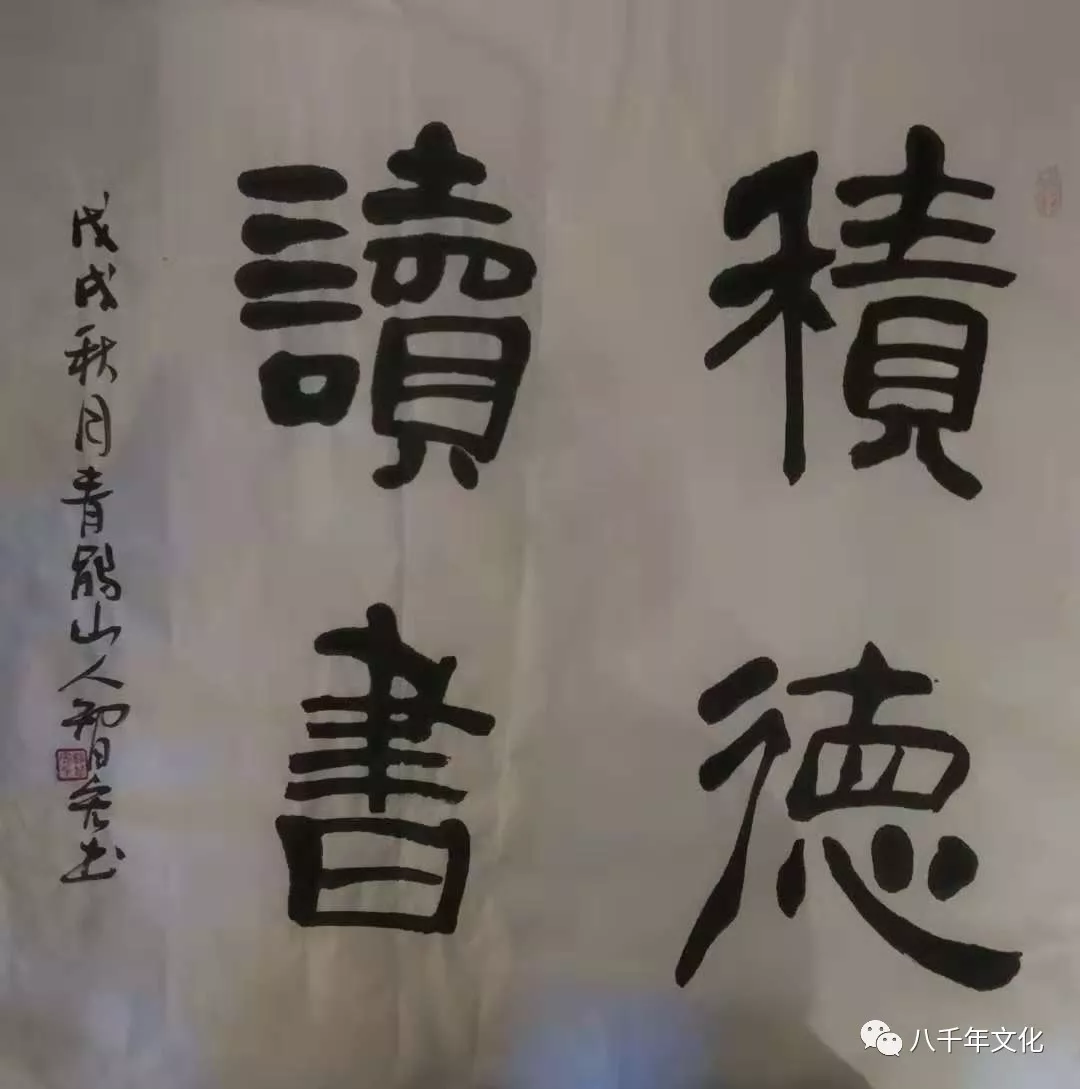 積德
讀書
戊戌秋月青鹏山人智尧书
八千年文化